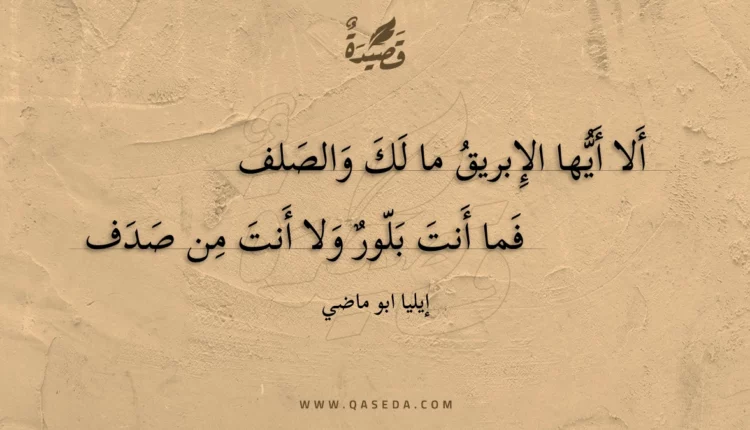 قَصِيدَةٌ
أَلا أَيُّها الإِبريقُ ما لَكَ وَالصَلف
فَما أَنتَ بَلّورٌ وَلا أَنتَ مِن صَدَف
إيليا ابو ماضي
WWW.QASEDA.COM